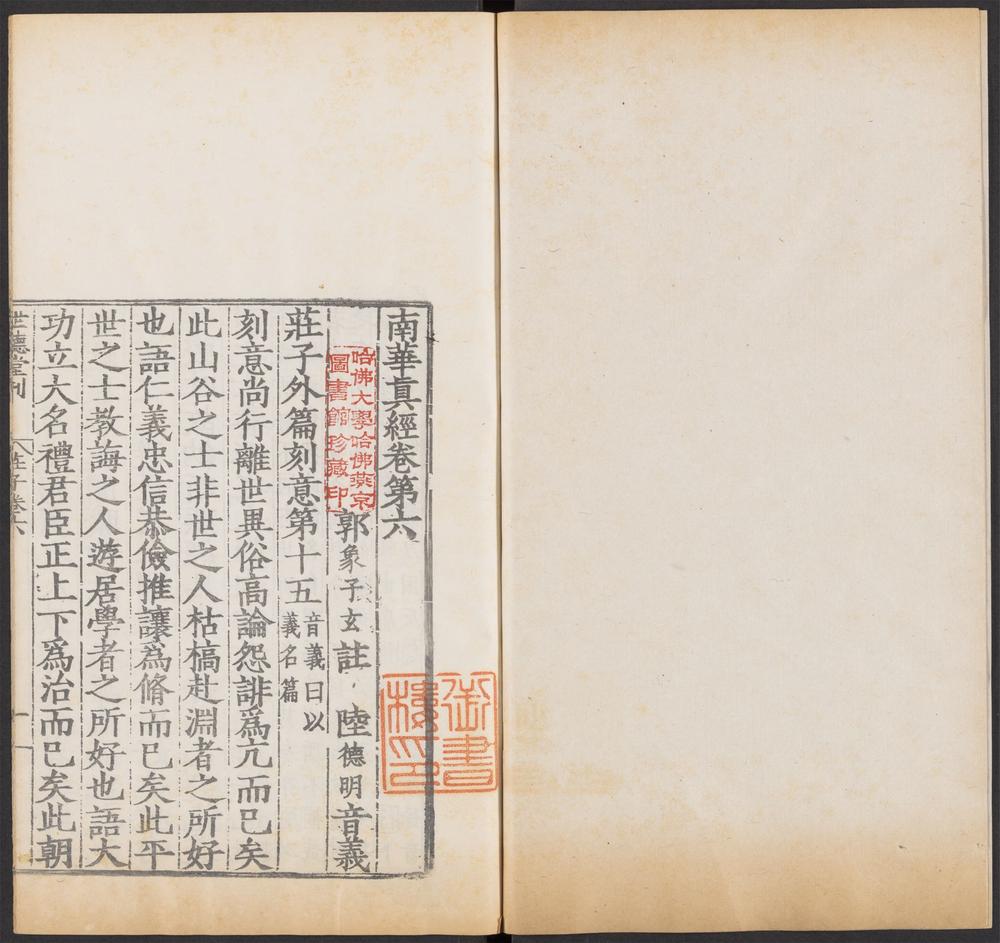 南華眞經卷第六
郭象子玄註 陸德明音義
莊子外篇刻意第十五 音義曰以
義名篇
刻意尚行離世異俗高論怨誹爲亢而已矣
此山谷之士非世之人枯槁赴淵者之所好
也語仁義忠信恭儉推讓爲脩而已矣此平
世之士教誨之人遊居學者之所好也語大
功立大名禮君臣正上下爲治而已矣此朝
世德堂刊
莊子卷六
一
哈佛大學哈佛燕京
圖書館珍藏印
御書
樓印